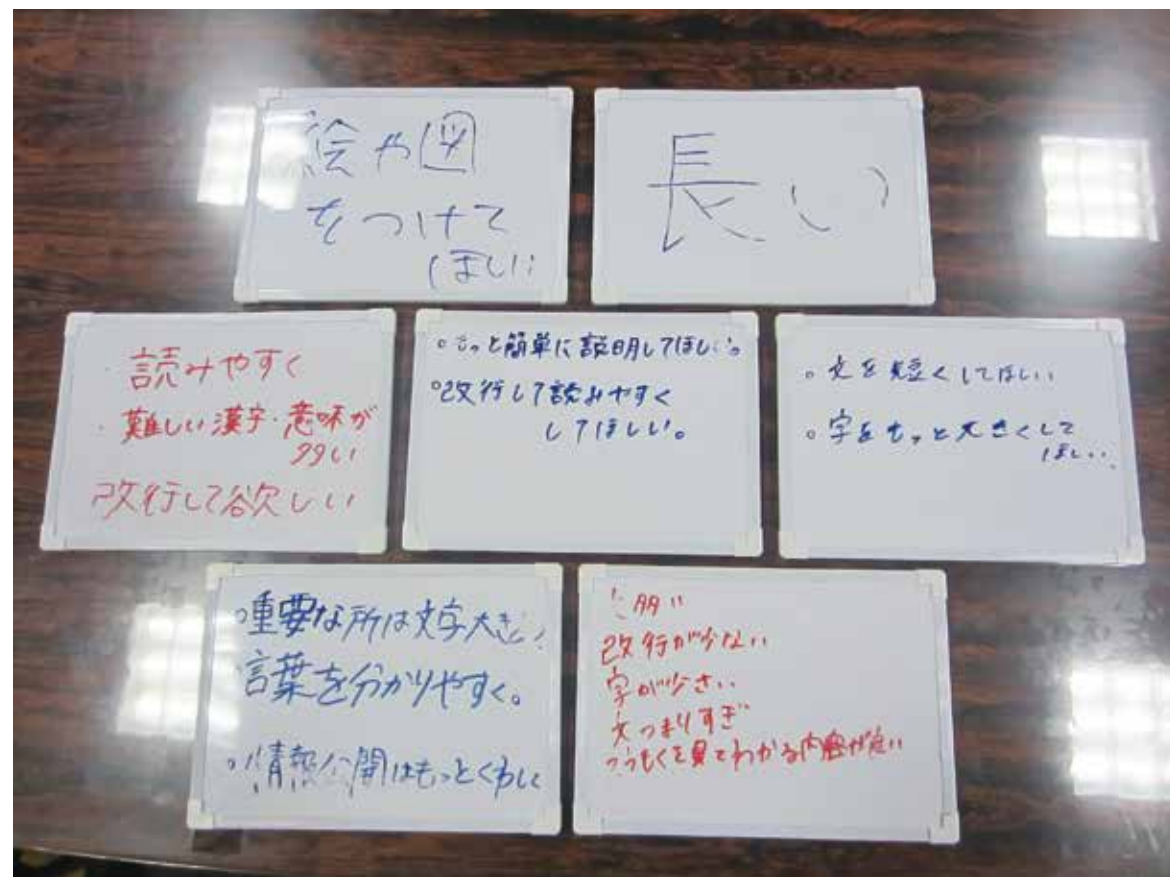 絵や図
をつけて
ほしい
長い
・読みやすく
・難しい漢字・意味が
多い
改行して欲しい
。もっと簡単に説明してほしい。
。改行して読みやすく
してほしい。
。文を短くしてほしい
。字をもっと大きくして
ほしい。
。重要な所は文字大き
言葉を分かりやすく。
。情報公開はもっとくわしく
改行が少ない
字が小さい
文つまりすぎ
こうもくを見てわかる内容が良い